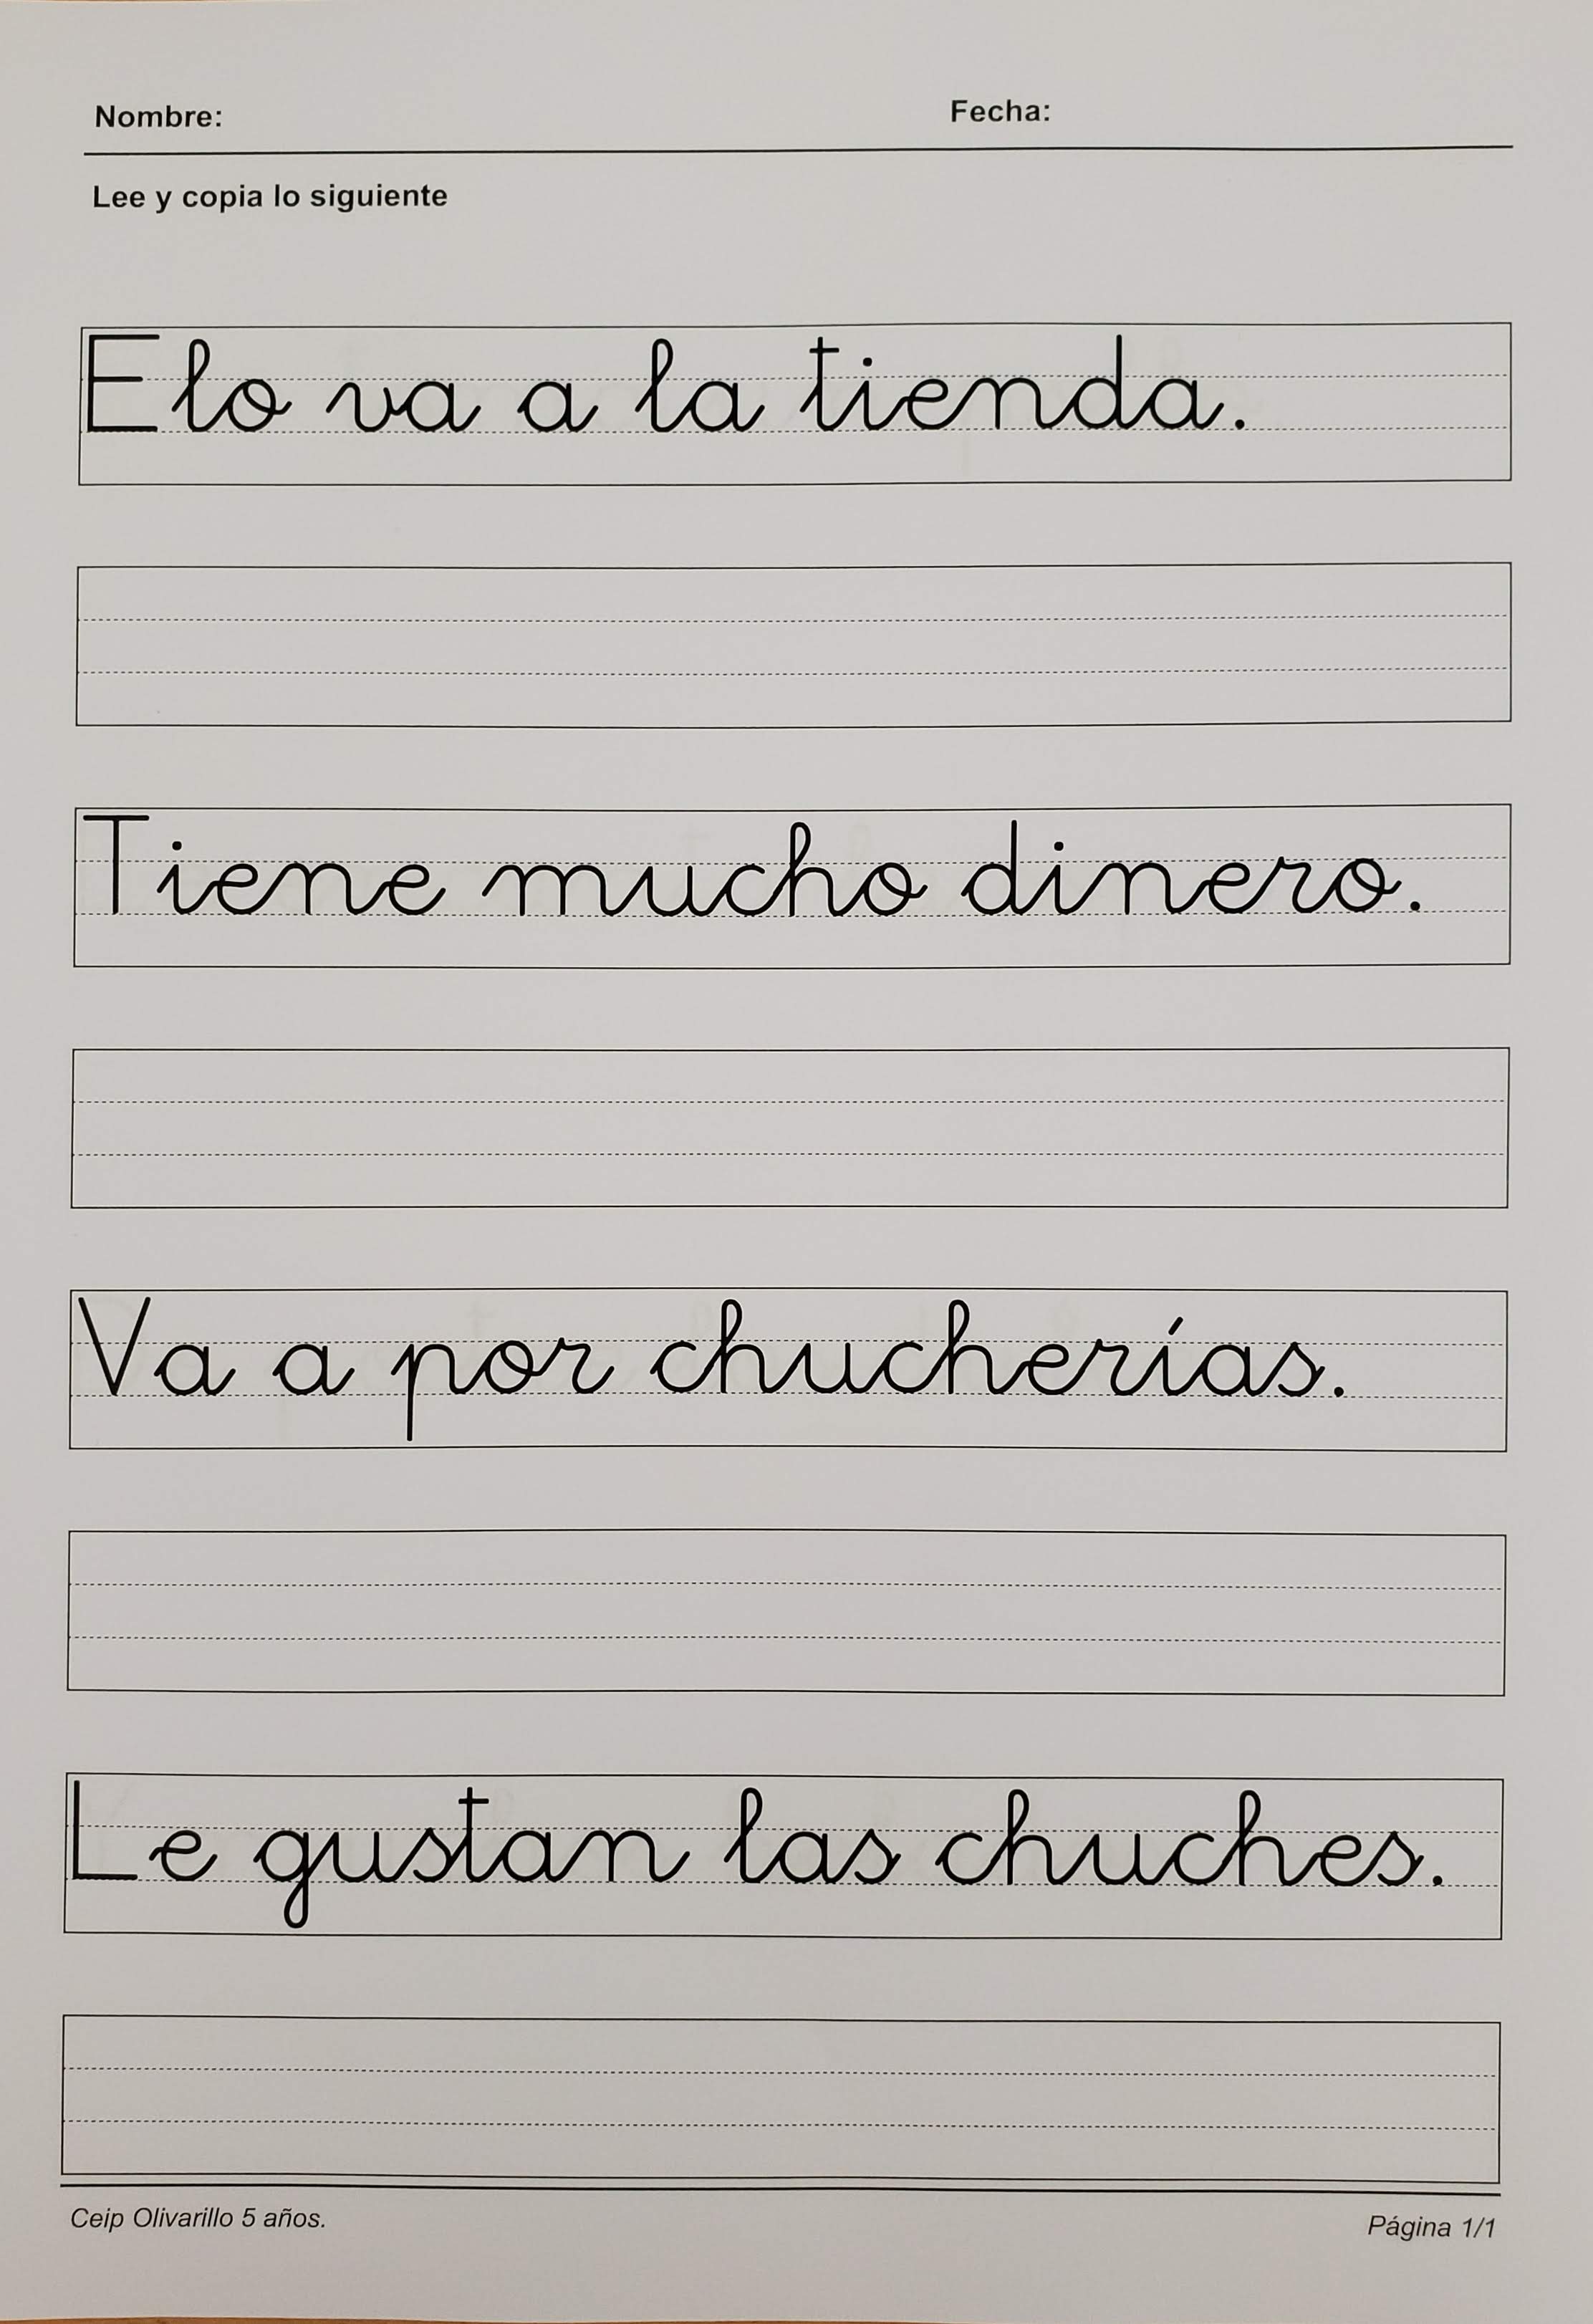 Nombre: Fecha:
Lee y copia lo siguiente
Elo va a la tienda.
Tiene mucho dinero.
Va a por chucherías.
Le gustan las chuches.
Ceip Olivarillo 5 años. Página 1/1